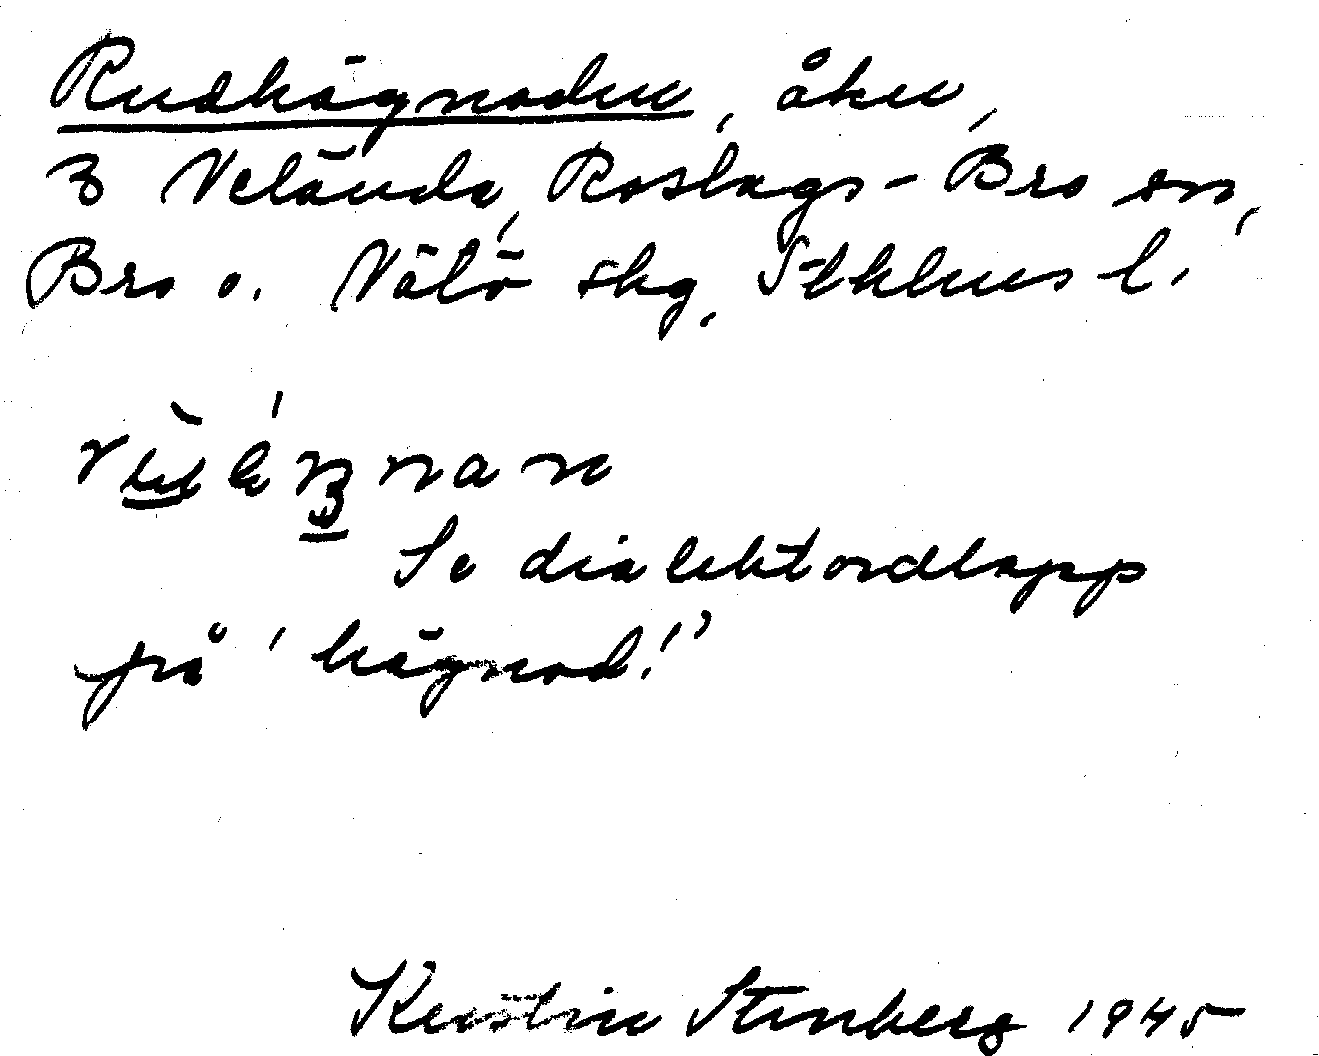 Rudhägnaden, åker,
3 Veländа, Roslags-Bro sn,
Bro o. Vätö skg, Sthlms l.
Se dialektordlapp
på 'hägnad!'
Kerstin Stenberg 1945